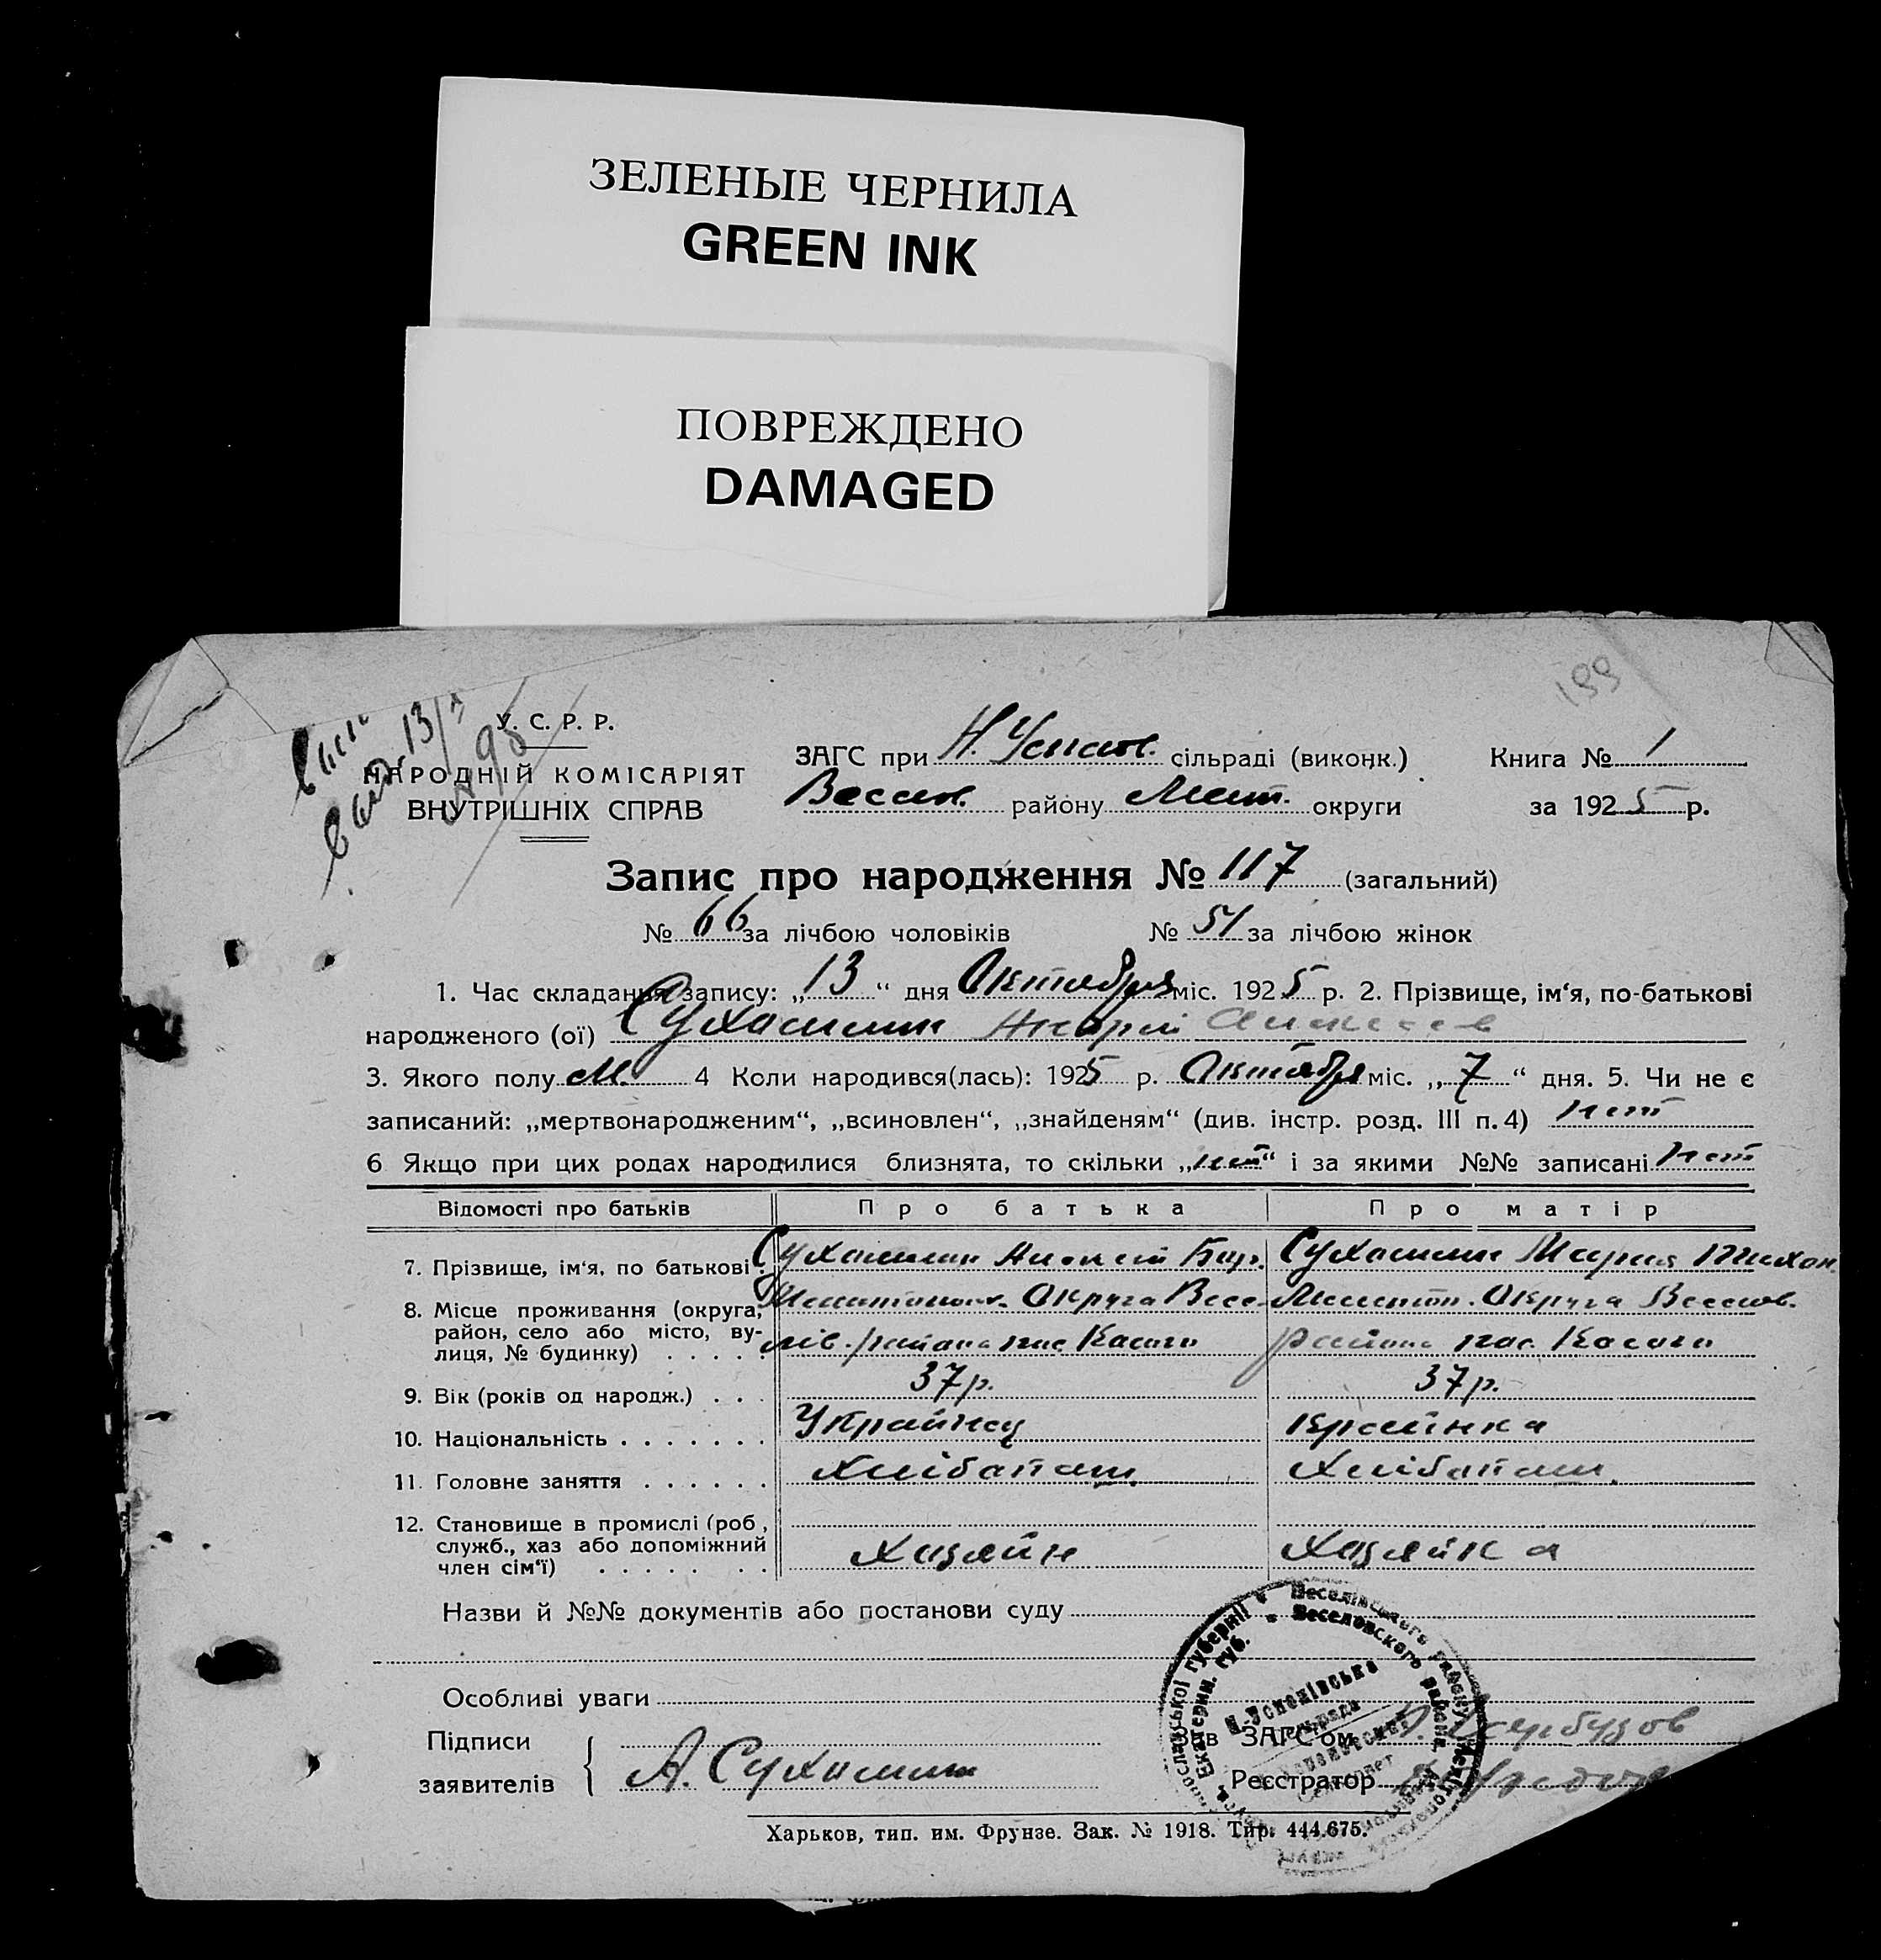 ЗЕЛЕНЫЕ ЧЕРНИЛА
GREEN INK
ПОВРЕЖДЕНО
DAMAGED
199
У. С. Р. Р.
НАРОДНІЙ КОМІСАРІЯТ
ВНУТРІШНІХ СПРАВ
ЗАГС при Н. Успен. сільраді (виконк.) Книга № 1
Весел. району Меліт. округи за 1925 р.
Запис про народження № 117 (загальний)
№ 66 за лічбою чоловіків № 51 за лічбою жінок
1. Час складання запису: „13“ дня Октября міс. 1925 р. 2. Прізвище, ім‘я, по-батькові
народженого (ої) Сухомлин Андрей Алексеев
3. Якого полу М. 4 Коли народився(лась): 1925 р. Октября міс. „7“ дня. 5. Чи не є
записаний: „мертвонародженим“, „всиновлен“, „знайденям“ (див. інстр. розд. III п. 4) нет
6 Якщо при цих родах народилися близнята, то скільки „нет“ і за якими №№ записані нет
Відомості про батьків Про батька Про матір
7. Прізвище, ім‘я, по батькові Сухомлин Алексей Сухомлин Мария Тихон.
8. Місце проживання (округа, Округа Весе- Округа Веселов.
район, село або місто, ву- лів. района района
лиця, № будинку)
9. Вік (років од народж.) 37 р. 37 р.
10. Національність Українец країнка
11. Головне заняття Хлібопаш. Хлібопаш.
12. Становище в промислі (роб.,
служб., хаз або допоміжний Хазяйін Хазяйка
член сім‘ї)
Назви й №№ документів або постанови суду
Особливі уваги
Підписи
заявителів А. Сухомлин
Зав ЗАГС‘ом
Реєстратор
Веселівського району
Веселовского района
Екатерин. губ.
Харьков, тип. им. Фрунзе. Зак. № 1918. Тир. 444.675.